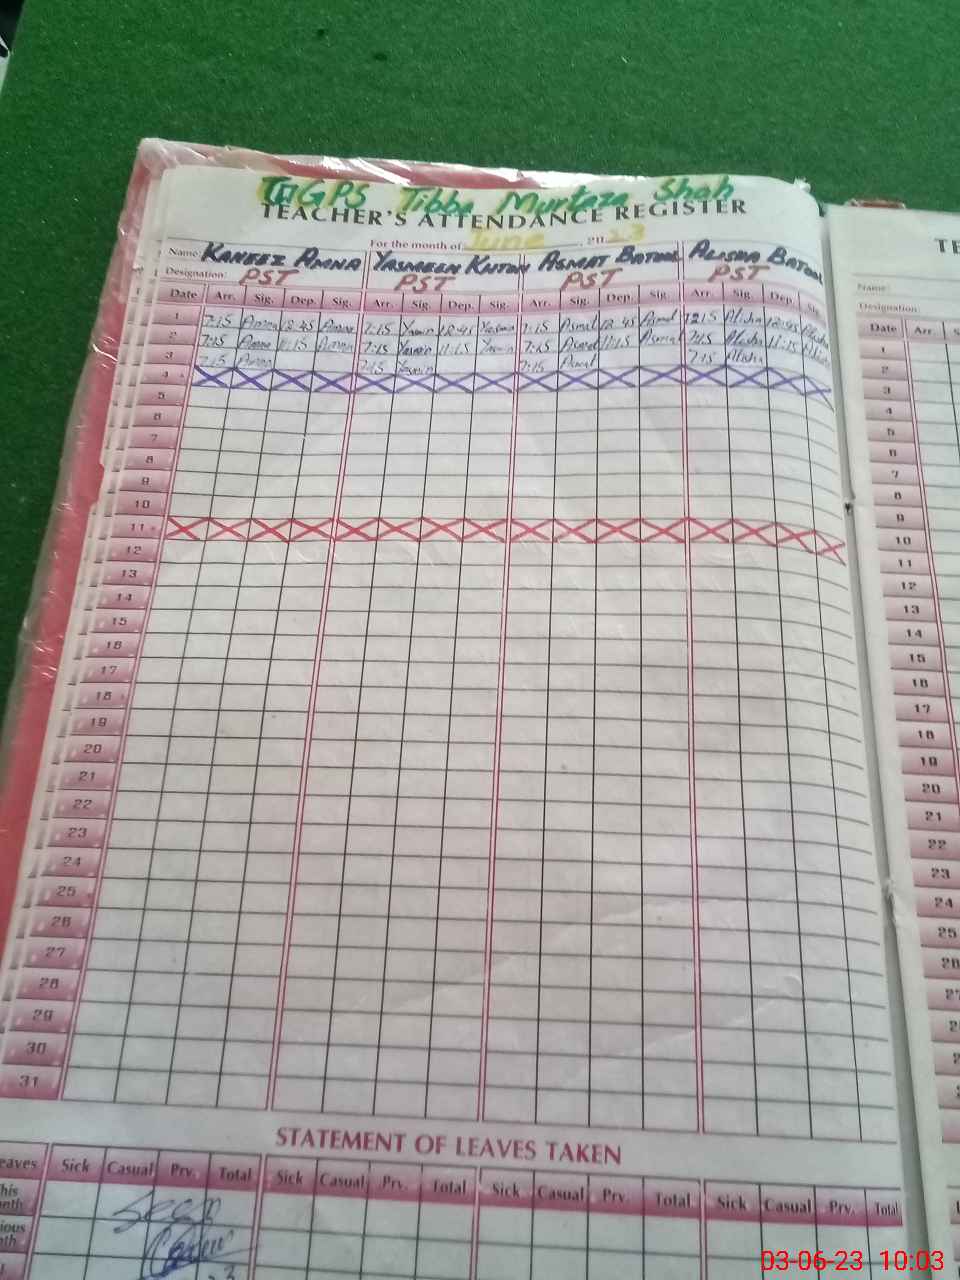 GPS Tibba Murtaza Shah
TEACHER'S ATTENDANCE REGISTER
For the month of June, 2023
Name: KANEEZ AMNA YASMEEN KHTON ASMAT BATOOL ALISHA BATOOL
Designation: PST PST PST PST
Date Arr. Sig. Dep. Sig. Arr. Sig. Dep. Sig. Arr. Sig. Dep. Sig. Arr. Sig. Dep. Sig.
1 7:15 Amna 12:45 Amna 7:15 Yasmin 12:45 Yasmin 7:15 Asmat 12:45 Asmat Alisha 12:45 Alisha
2 7:15 Amna 11:15 Amna 7:15 Yasmin 11:15 Yasmin 7:15 Asmat 11:15 Asmat 7:15 Alisha 11:15 Alisha
3 7:15 Amna 7:15 Yasmin 7:15 Asmat 7:15 Alisha
4
5
6
7
8
9
10
11
12
13
14
15
16
17
18
19
20
21
22
23
24
25
26
27
28
29
30
31
STATEMENT OF LEAVES TAKEN
eaves Sick Casual Prv. Total Sick Casual Prv. Total Sick Casual Prv. Total Sick Casual Prv. Total
his
nth
Seen
ious
th
TE
Name:
Designation
Date Arr. S
1
2
3
4
5
6
7
8
9
10
11
12
13
14
15
16
17
18
19
20
21
22
23
24
25
03-06-23 10:03